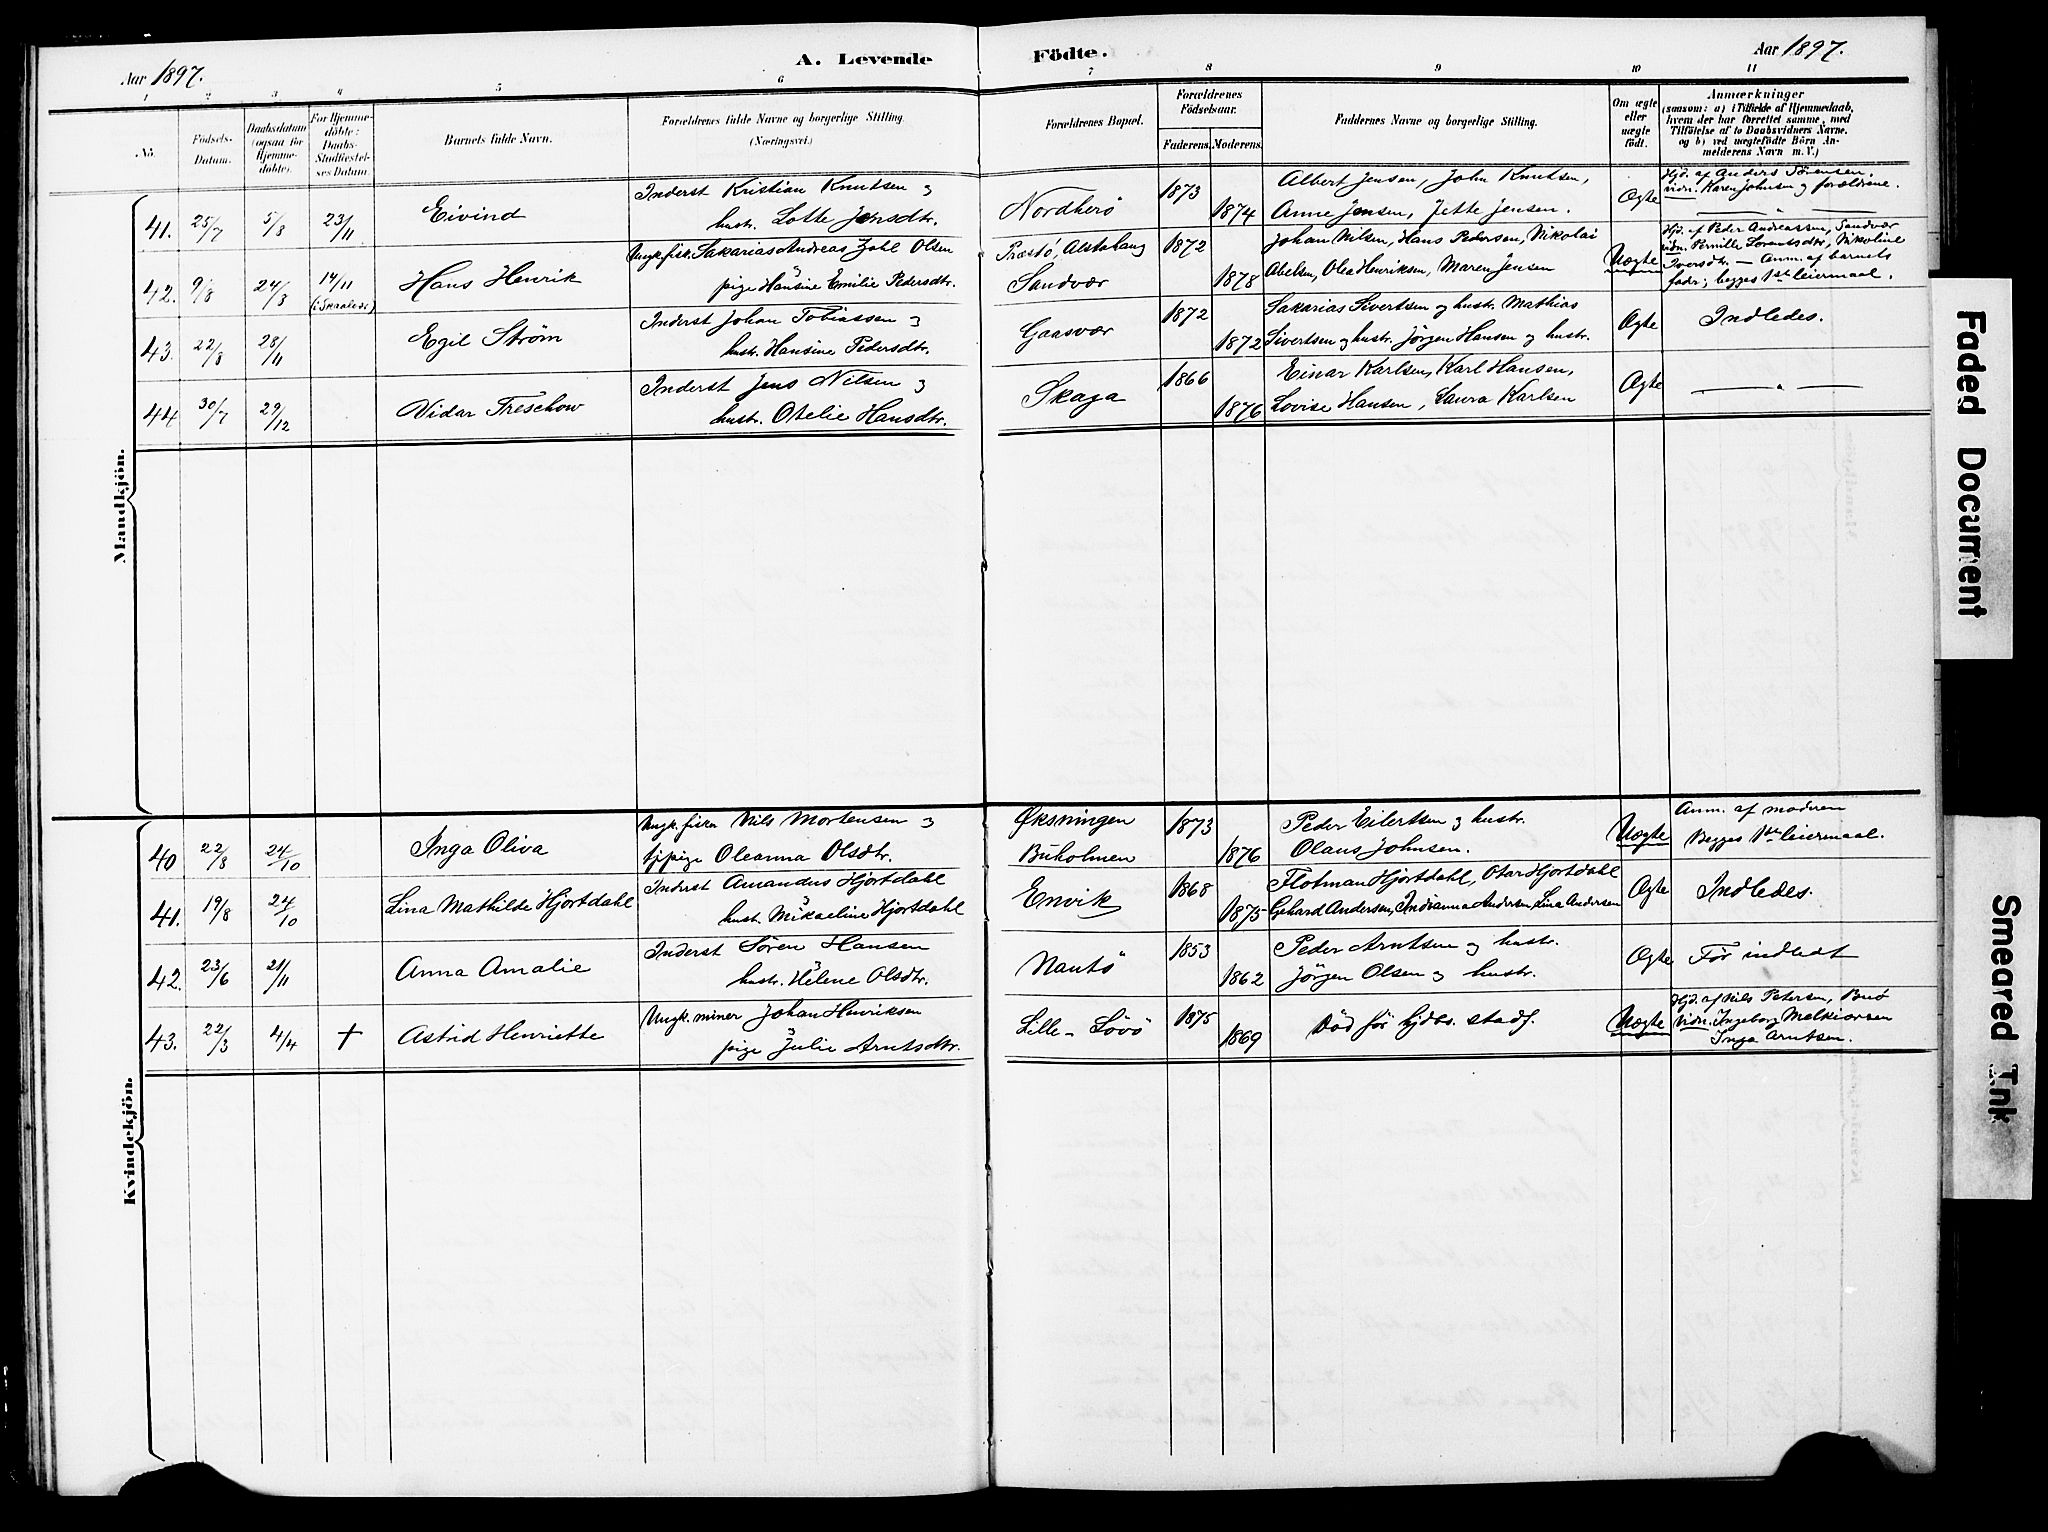 Aar 1897.
A. Levende Födte.
Aar 1897.
1 2 3 4 5 6 7 8 9 10 11
No.
Födsels-
Datum.
Daabsdatum
(ogsaa for
Hjemme-
döbte).
For Hjemme-
döbte:
Daabs-
Stadfæstel-
ses Datum.
Barnets fulde Navn.
Forældrenes fulde Navne og borgerlige Stilling.
(Næringsvei.)
Forældrenes Bopæl.
Forældrenes
Födselsaar.
Faderens. Moderens.
Faddernes Navne og borgerlige Stilling.
Om ægte
eller
uægte
födt.
Anmærkninger
(saasom: a) i Tilfælde af Hjemmedaab,
hvem der har forrettet samme, med
Tilföielse af to Daabsvidners Navne.
og b) ved uægtefödte Börn An-
melderens Navn m. V.)
Mandkjön.
41. 25/7 5/8 23/11 Eivind
Inderst Kristian Knutsen og
hustr. Lotte Jensdtr.
Nordherö 1873 1874
Albert Jensen, John Knutsen,
Anne Jensen, Jette Jensen.
Ægte
Hjd. af Anders Sörensen.
vidn. Karen Johnsen og forældrene.
— " —
42. 9/8 24/3 14/11
(i Skaalvær)
Hans Henrik
Ungk. fisk. Sakarias Andreas Zahl Olsen
pige Hansine Emilie Pedersdtr.
Præstö, Alstahaug
Sandvær
1872 1878
Johan Nilsen, Hans Pedersen, Nikolai
Abelsen, Olea Henriksen, Maren Jensen
Uægte
Hjd. af Peder Andreassen, Sandvær
vidn. Pernille Lorentsdtr, Nikoline
Iversdtr. — Anm. af barnets
fader; begges 1ste leiermaal.
43. 22/8 28/11 Egil Ström
Inderst Johan Tobiassen og
hustr. Hansine Pedersdtr.
Gaasvær 1872 1872
Sakarias Sivertsen og hustr. Mathias
Sivertsen og hustr. Jörgen Hansen og hustr.
Ægte Indledes.
44. 30/7 29/12 Vidar Treschow
Inderst Jens Nilsen og
hustr. Otelie Hansdtr.
Skaga 1866 1876
Einar Karlsen, Karl Hansen,
Lovise Hansen, Laura Karlsen
Ægte — " —
Kvindekjön.
40 22/8 24/10 Inga Oliva
Ungk. fisker Nils Mortensen og
tjpige Oleanna Olsdtr.
Øksningen
Buholmen
1873 1876
Peder Eilertsen og hustr.
Olaus Johnsen.
Uægte
Anm. af moderen
Begges 1ste leiermaal.
41. 19/8 24/10 Lina Mathilde Hjortdahl
Inderst Amandus Hjortdahl
hust. Mikaeline Hjortdahl
Envik 1868 1875
Flotman Hjortdahl, Otar Hjortdahl
Gehard Andersen, Indianna Andersen, Lina Andersen
Ægte Indledes.
42. 23/6 21/11 Anna Amalie
Inderst Sören Hansen
hustr. Helene Olsdtr.
Nautö 1853 1862
Peder Arntsen og hustr.
Jörgen Olsen og hustr.
Ægte Før indledt
43. 22/3 4/4 † Astrid Henriette
Ungk. miner Johan Henriksen
pige Julie Arntsdtr.
Lille-Lövö 1875 1869
Död för hjdbs. stadf.
Uægte
Hjd. af Nils Petersen, Buö
Vidn. Ingeborg Melkiorsen
Inga Arntsen.
Faded Document
Smeared Ink